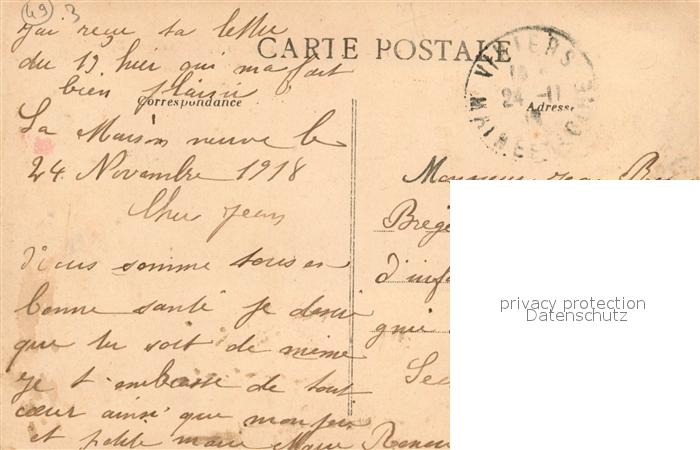 49 3
J'ai reçu ta lettre
du 19 hier qui ma fait
bien plaisir
CARTE POSTALE
Correspondance
Adresse
VIHIERS
24 -11
MAINE ET LOIRE
La Maison neuve le
24 Novembre 1918
Cher Jean
Nous somme tous en
bonne santé je desir
que tu soit de meme
Je t'embrasse de tout
cœur ainsi que mon
et petite Marie
Monsieur Jean
d'inf
gnie
Sec
privacy protection
Datenschutz